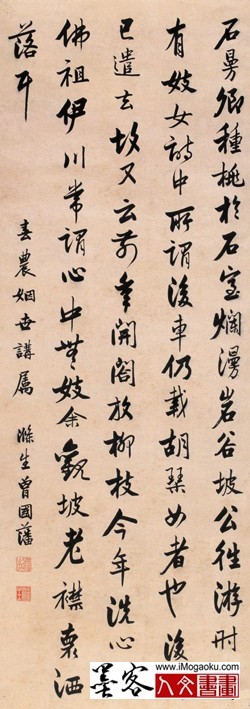 石曼卿種桃於石室爛漫岩谷坡公往游時
有妓女詩中所謂後車仍載胡琴女者也後
已遣去故又云前年開閣放柳枝今年洗心
佛祖伊川常謂心中無妓余觀坡老襟洒
落耳
春農姻世講屬 滌生曾國藩
www.iMogaoku.com
墨客 人文書畫